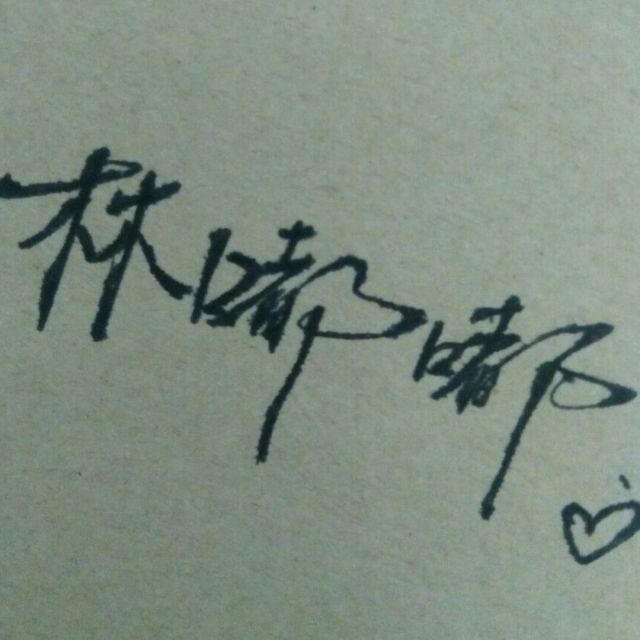 林嘟嘟